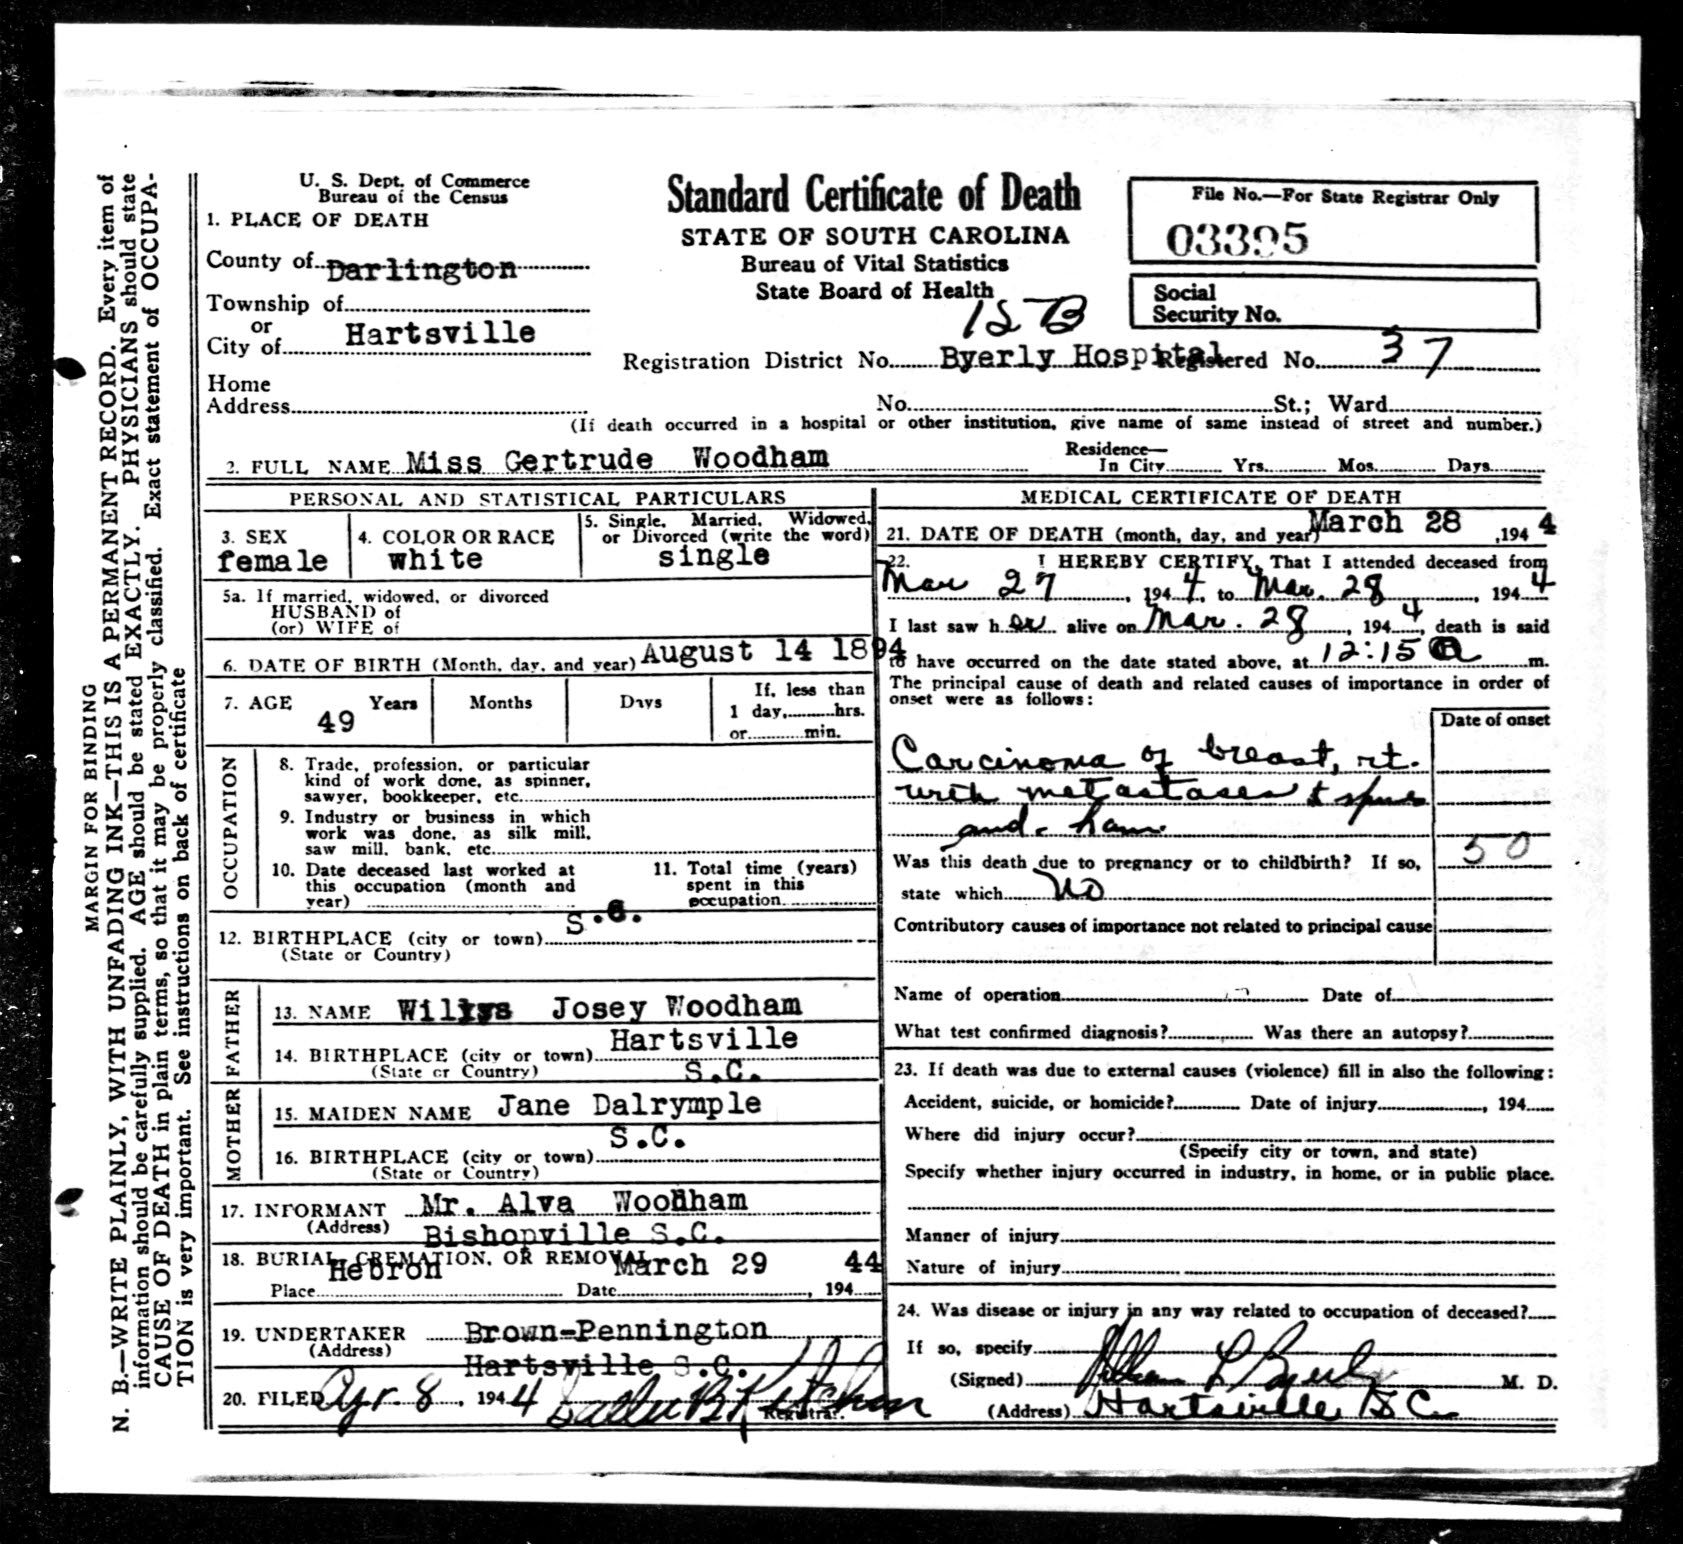 MARGIN FOR BINDING
N. B.—WRITE PLAINLY, WITH UNFADING INK—THIS IS A PERMANENT RECORD. Every item of
information should be carefully supplied. AGE should be stated EXACTLY. PHYSICIANS should state
CAUSE OF DEATH in plain terms, so that it may be properly classified. Exact statement of OCCUPA-
TION is very important. See instructions on back of certificate
U. S. Dept. of Commerce
Bureau of the Census
Standard Certificate of Death
STATE OF SOUTH CAROLINA
Bureau of Vital Statistics
State Board of Health
File No.—For State Registrar Only
03395
Social
Security No.
1. PLACE OF DEATH
County of Darlington
Township of
or
City of Hartsville
15 B
Registration District No. Byerly Hospital Registered No. 37
Home
Address
No. St.; Ward
(If death occurred in a hospital or other institution, give name of same instead of street and number.)
2. FULL NAME Miss Gertrude Woodham
Residence—
In City Yrs. Mos. Days
PERSONAL AND STATISTICAL PARTICULARS
3. SEX
female
4. COLOR OR RACE
white
5. Single, Married, Widowed,
or Divorced (write the word)
single
5a. If married, widowed, or divorced
HUSBAND of
(or) WIFE of
6. DATE OF BIRTH (Month, day, and year) August 14 1894
7. AGE Years Months Days
49
If less than
1 day, hrs.
or min.
OCCUPATION
8. Trade, profession, or particular
kind of work done, as spinner,
sawyer, bookkeeper, etc.
9. Industry or business in which
work was done, as silk mill,
saw mill, bank, etc.
10. Date deceased last worked at
this occupation (month and
year)
11. Total time (years)
spent in this
occupation
12. BIRTHPLACE (city or town) S.C.
(State or Country)
FATHER
13. NAME Josey Woodham
14. BIRTHPLACE (city or town) Hartsville
(State or Country) S.C.
MOTHER
15. MAIDEN NAME Jane Dalrymple
16. BIRTHPLACE (city or town) S.C.
(State or Country)
17. INFORMANT Mr. Alva Woodham
(Address) Bishopville S.C.
18. BURIAL, CREMATION, OR REMOVAL
Place Hebron Date March 29, 194 44
19. UNDERTAKER Brown-Pennington
(Address) Hartsville S.C.
20. FILED Apr. 8, 1944
Registrar.
MEDICAL CERTIFICATE OF DEATH
21. DATE OF DEATH (month, day, and year) March 28, 1944
22. I HEREBY CERTIFY, That I attended deceased from
Mar 27, 1944, to Mar. 28, 1944
I last saw her alive on Mar. 28, 1944, death is said
to have occurred on the date stated above, at 12:15 A m.
The principal cause of death and related causes of importance in order of
onset were as follows:
Date of onset
Carcinoma of breast, rt.
with metastases
and
50
Was this death due to pregnancy or to childbirth? If so,
state which No
Contributory causes of importance not related to principal cause
Name of operation Date of
What test confirmed diagnosis? Was there an autopsy?
23. If death was due to external causes (violence) fill in also the following:
Accident, suicide, or homicide? Date of injury, 194
Where did injury occur?
(Specify city or town, and state)
Specify whether injury occurred in industry, in home, or in public place.
Manner of injury
Nature of injury
24. Was disease or injury in any way related to occupation of deceased?
If so, specify
(Signed) William L Byerly M. D.
(Address) Hartsville S C